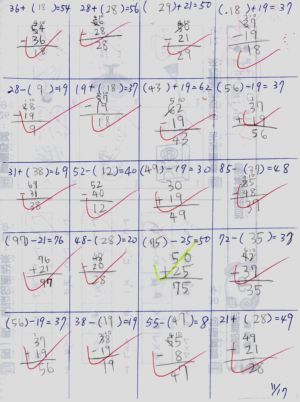 36+(18)=54 28+(28)=56 (29)+21=50 (18)+19=37
54 56 50 37
-36 -28 -21 -19
18 28 29 18
28-(9)=19 19+(18)=37 (43)+19=62 (56)-19=37
28 37 62 37
-19 -19 -19 +19
9 18 43 56
31+(38)=69 52-(12)=40 (49)-19=30 85-(37)=48
69 52 30 85
-31 -40 +19 -48
38 12 49 37
(97)-21=76 48-(28)=20 (75)-25=50 72-(35)=37
76 48 50 72
+21 -20 +25 -37
97 8 75 35
(56)-19=37 38-(19)=19 55-(47)=8 21+(28)=49
37 38 55 49
+19 -19 -8 -21
56 19 47 28
11/17